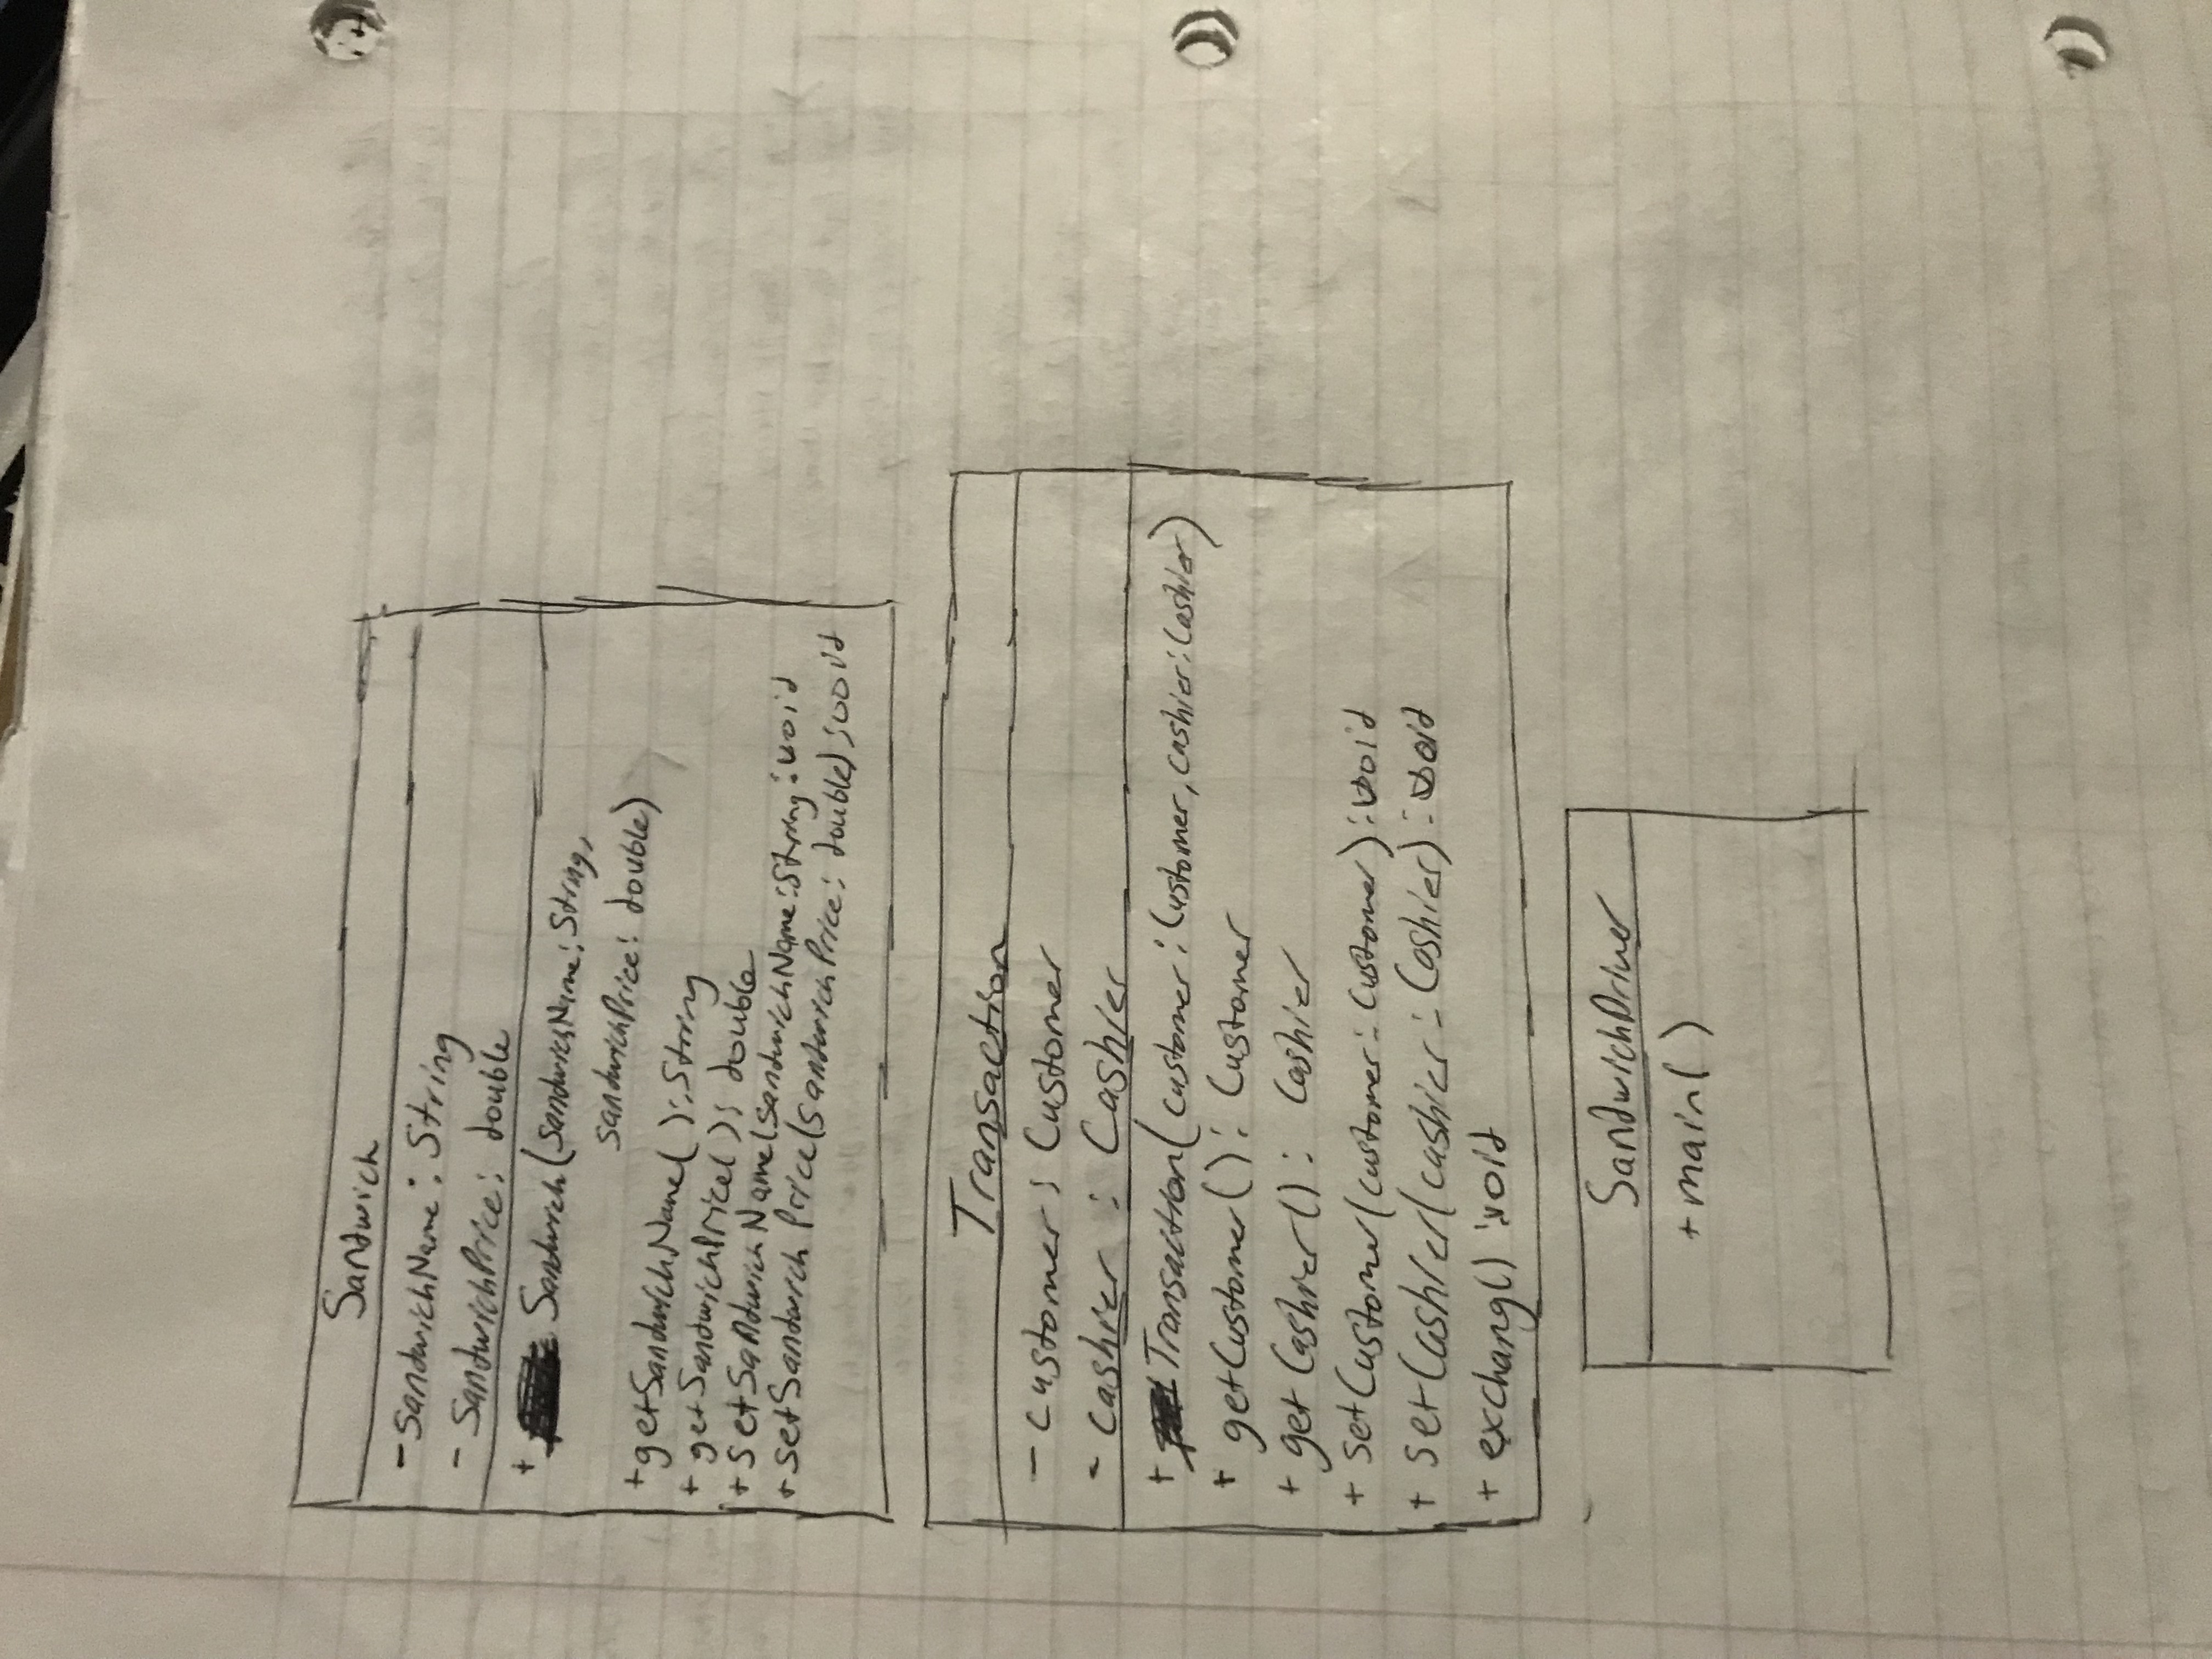 Sandwich
- sandwichName: String
- SandwichPrice: double
+ Sandwich(sandwichName: String,
sandwichPrice: double)
+getSandwichName( ): String
+ getSandwichPrice( ): double
+ setSandwichName(sandwichName: String : void
+ setSandwich Price(sandwichPrice: double) : void
Transaction
- customer : Customer
- cashier : Cashier
+ Transaction( customer : Customer, cashier: Cashier)
+ getCustomer() : Customer
+ get Cashier() : Cashier
+ setCustomer(customer: Customer) : void
+ setCashier(cashier : Cashier) : void
+ exchang() : void
SandwichDriver
+main( )